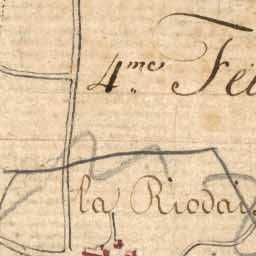 4.me Fe
la Riodai